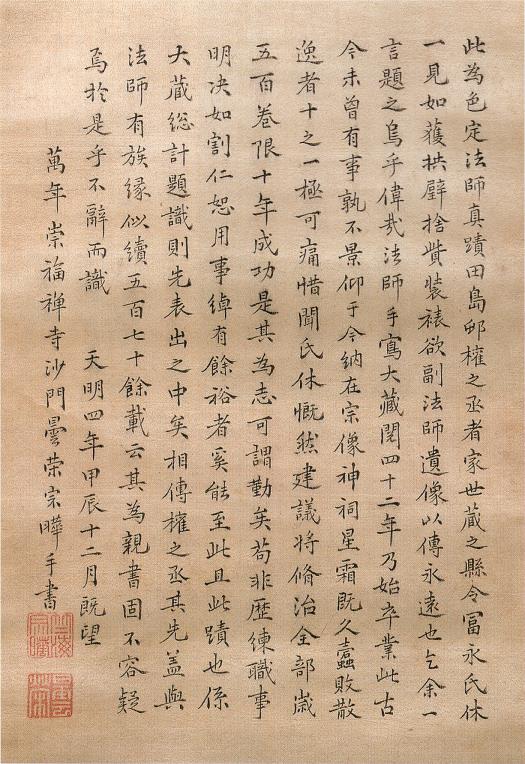 此為色定法師真蹟田島邨權之丞者家世蔵之縣令冨永氏休
一見如獲拱壁捨貲裝裱欲副法師遺像以傳永遠也乞余一
言題之烏乎偉哉法師手寫大藏閱四十二年乃始卒業此古
今未曾有事孰不景仰于今納在宗像神祠星霜既久蠹敗散
逸者十之一極可痛惜聞氏休慨然建議將脩治全部歳
五百巻限十年成功是其為志可謂勤矣苟非歷練職事
明決如割仁恕用事綽有餘裕者奚能至此且此蹟也係
大蔵総計題識則先表出之中矣相傳權之丞其先盖與
法師有族縁似續五百七十餘載云其為親書固不容疑
焉於是乎不辭而識　天明四年甲辰十二月既望
萬年崇福禅寺沙門曇荣宗曄手書